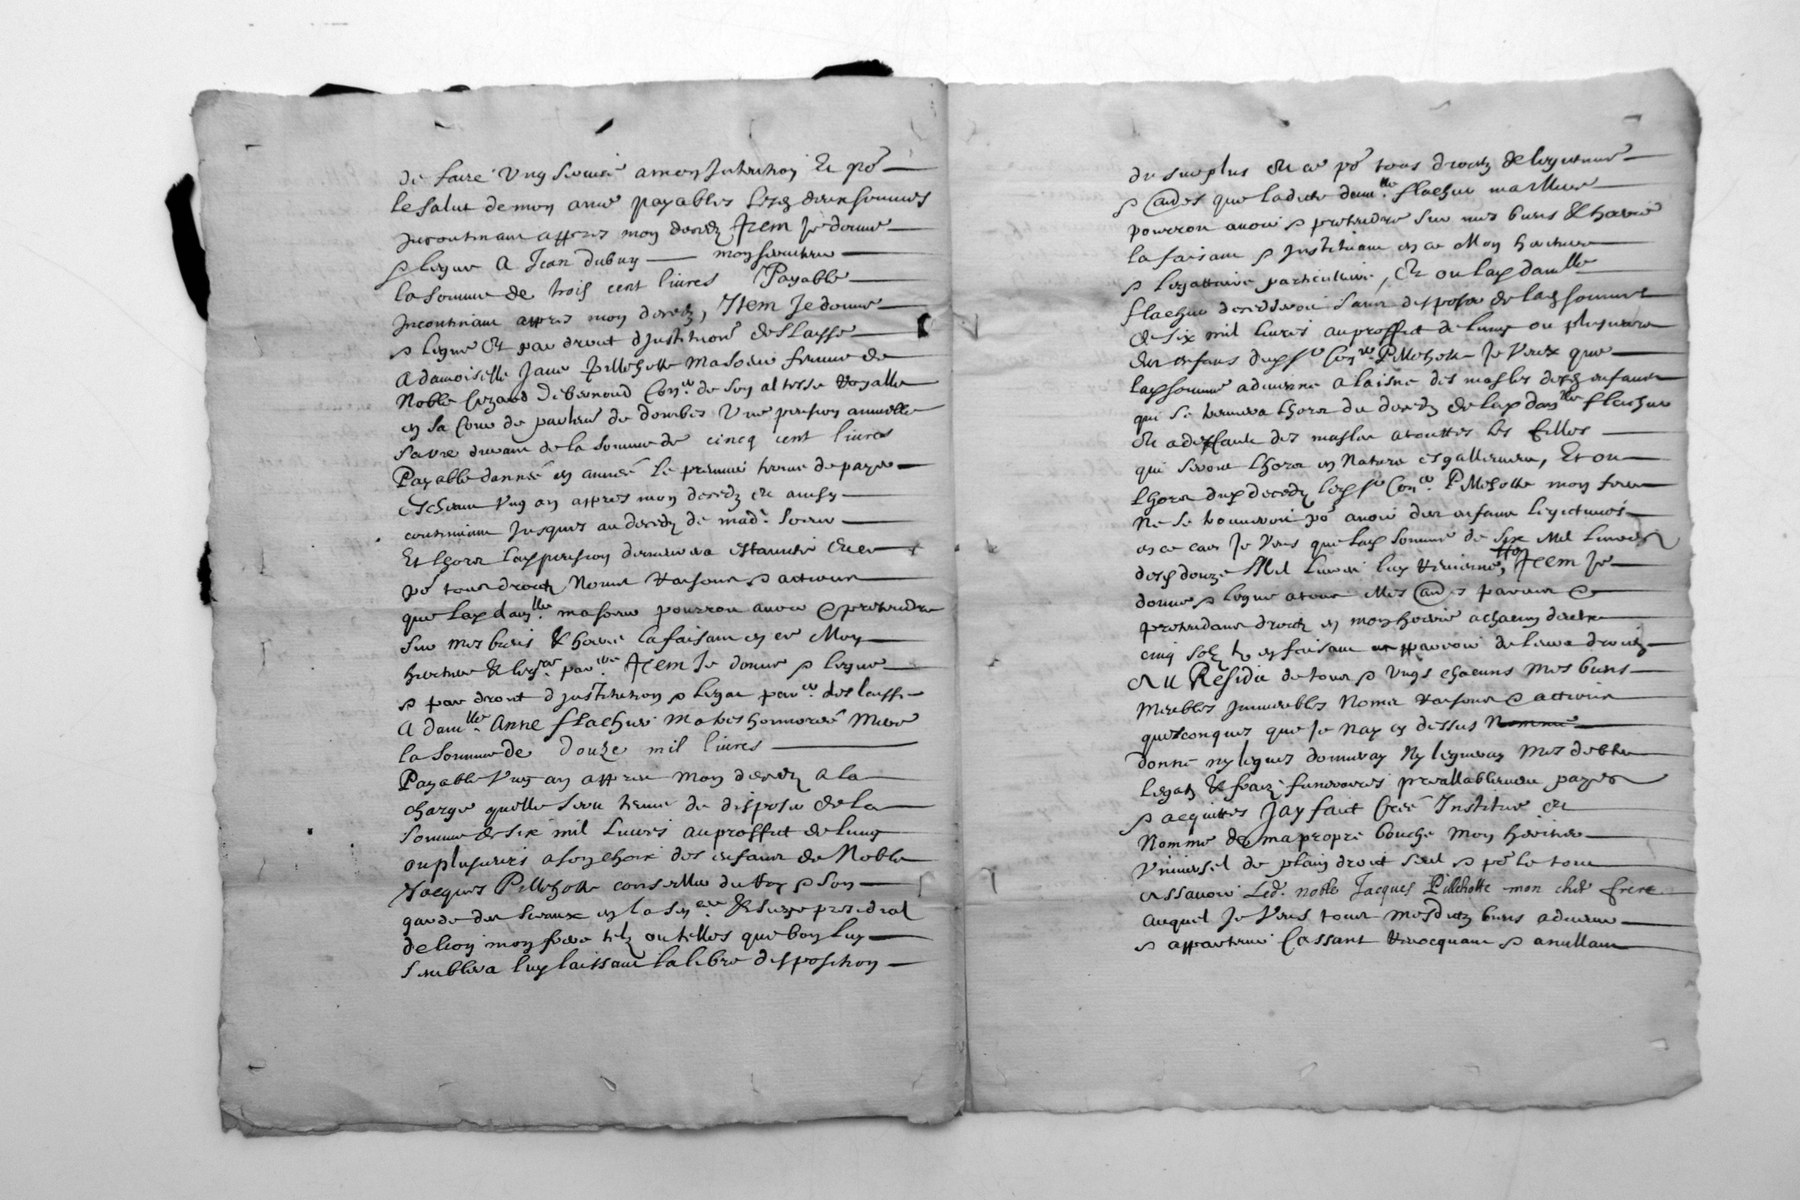 de faire Ung service a mon Intention Et po.r
le salut de mon ame payables lesd. deux sommes
Incontinant appres mon decedz Item Je donne
& legue A Jean Dubuy mon serviteur
la somme de trois cent livres Payable
Incontinant appres mon decedz, Item Je donne
& legue Et par droit d Institution delaisse
A damoiselle Jane Pillehotte Ma soeur femme de
Noble Cezard Debernoud Con.er de son altesse Royalle
en sa Cour de parlem de Dombes Une pension annuelle
sa vie durant de la somme de cincq cent livres
Payable d année en année le premier terme de paye
escheant Ung an appres mon decedz Et ainsy
continuant Jusques au decedz de mad.e soeur
Et lhors lad pension demeurera estainte Et ce
po.r tous droitz Noms Raisons & actions
que lad dam.lle ma soeur pourroit avoir & pretendre
sur mes biens & hoirie la faisant en ce Mon
heritiere & leg.re par.re Item Je donne & legue
& par droit d Institution & legat par.er delaisse
A dam.lle Anne flachier Ma tres honnorée Mere
la somme de douze mil livres
Payable Ung an appres mon decedz a la
charge quelle sera tenue de disposer de la
somme de six mil livres au proffict de lung
ou plusieurs a son choix des enfans de Noble
Jacques Pillehotte conseiller du Roy & son
garde des sceaux en la sen.ee & siege presidial
de Lion mon frere telz ou telles que bon luy
semblera luy laissant la libre disposition
du surplus Et ce po.r tous droictz de legitime
& autres que ladite dam.lle flachier ma mere
pourroit avoir & pretendre sur mes biens & hoirie
la faisant & Instituant en ce Mon heritiere
& legattaire particulliere, Et ou lad dam.lle
flachier decederoit sans disposer de lad somme
de six mil livres au proffict de lung ou plusieurs
des enfans dud s.r Con.er Pillehotte Je Veux que
lad somme advienne a laisne des masles desd enfans
qui se trouvera lhors du decedz de lad dam.lle flachier
Et a deffault des masles a touttes les filles
qui seront lhors en Nature esgallement, Et ou
lhors dud decedz led s.r Con.er Pillehotte mon frere
Ne se trouveroit po.r avoir des enfans legitimes
en ce cas Je Veux que lad somme de six Mil livres
desd douze Mil livres luy revienne, Item Je
donne & legue a tous Mes autres parans &
pretendans droit en mon hoirie a chacun deux
cinq solz les faisant apparoir de leurs droitz
Et au Residu de tous & Ungs chacuns Mes biens
Meubles Immeubles Noms Raisons & actions
quesconques que Je Nay cy dessus
donné ny legués donneray Ny legueray Mes debtes
legatz & fraiz funeraires prealablement payes
& acquittes Jay faict Creé Institué Et
Nommé de ma propre bouche Mon heritier
Universel de plain droit seul & po.r le tout
assavoir Led. noble Jacques Pillehotte mon cher frere
auquel Je Veux tous mesditz biens advenir
& appartenir Cassant revocquant & anullant